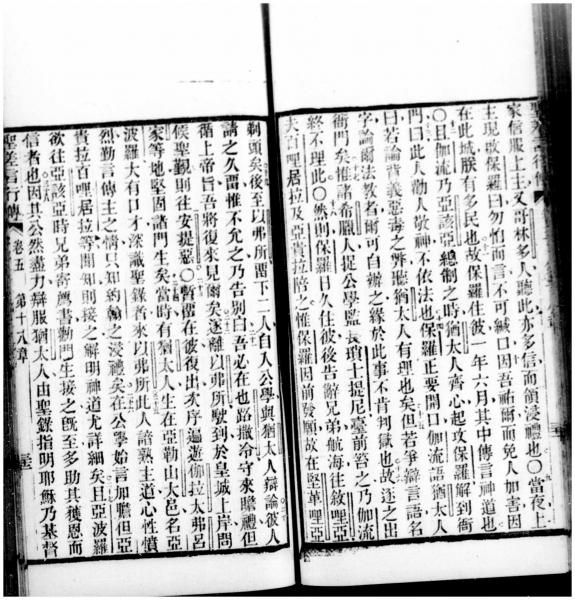 聖差言行傳
家信服上主又哥林多人聽此亦多信而領浸禮也〇當夜上
主現啟保羅曰勿怕而言不可緘口因吾祐爾而免人加害因
在此城朕有多民也故保羅住彼一年六月其中傳言神道也
〇且伽流乃亞該亞總制之時猶太人齊心起攻保羅解到衙
門曰此人勸人敬神不依法也保羅正要開口伽流語猶太人
曰若論背義惡毒之弊聽猶太人有理也矣但若爭辯言語名
字論爾法教者爾可自辦之緣於此事不肯判獄也故逐之出
衙門矣惟諸希臘人捉公學監長瑣士提尼臺前笞之乃伽流
終不理此〇然則保羅日久住彼後告辭弟兄航海往敘哩亞
夫百哩居拉及亞貴拉陪之惟保羅因前發願故在堅革哩亞
剃頭矣後至以弗所畱下二人自入公學與猶太人辯論彼人
請之久畱惟不允之乃告別曰吾必在也路撒冷守來瞻禮但
循上帝旨吾將復來見爾矣遂離以弗所駛到於皇城上岸問
候聖覡則往安提惡〇暫畱在彼復出次序遍遊伽拉太弗呂
家等地堅固諸門生矣當時有猶太人生在亞勒山大邑名亞
波羅大有口才深識聖錄者來以弗所此人諳熟主道心性憤
烈勤言傳主之情只知約翰之浸禮矣在公學始言加膽但亞
貴拉百哩居拉等聞知則接之解明神道尤詳細矣且亞波羅
欲往亞該亞時兄弟寄薦書勸門生接之旣至多助其獲恩而
信者也因其公然盡力辯服猶太人由聖錄指明耶穌乃基督
聖差言行傳 卷五 第十八章